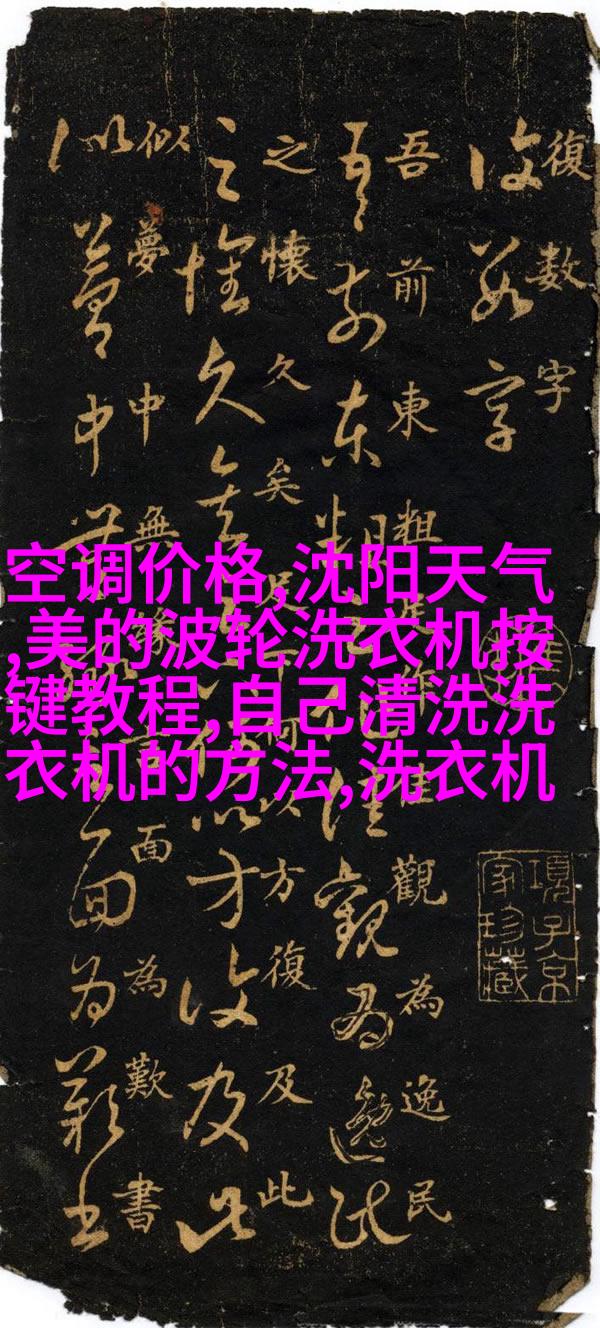 復数字
吾前東粗足作佳觀為逸民
之懷久矣足下何以方復及此
似夢中無緣言面為歎書
項子京家珍藏
空调价格,沈阳天气
,美的波轮洗衣机按
键教程,自己清洗洗
衣机的方法,洗衣机